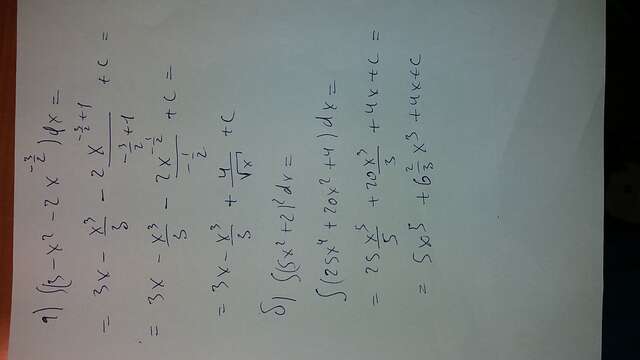 а) ∫(3 - x² - 2x^{-3/2})dx =
= 3x - x³/3 - 2x^{-3/2+1}/(-3/2+1) + c =
= 3x - x³/3 - 2x^{-1/2}/(-1/2) + c =
= 3x - x³/3 + 4/√x + c
б) ∫(5x² + 2)² dx =
∫(25x⁴ + 20x² + 4) dx =
= 25 x⁵/5 + 20x³/3 + 4x + c =
= 5x⁵ + 6 2/3 x³ + 4x + c